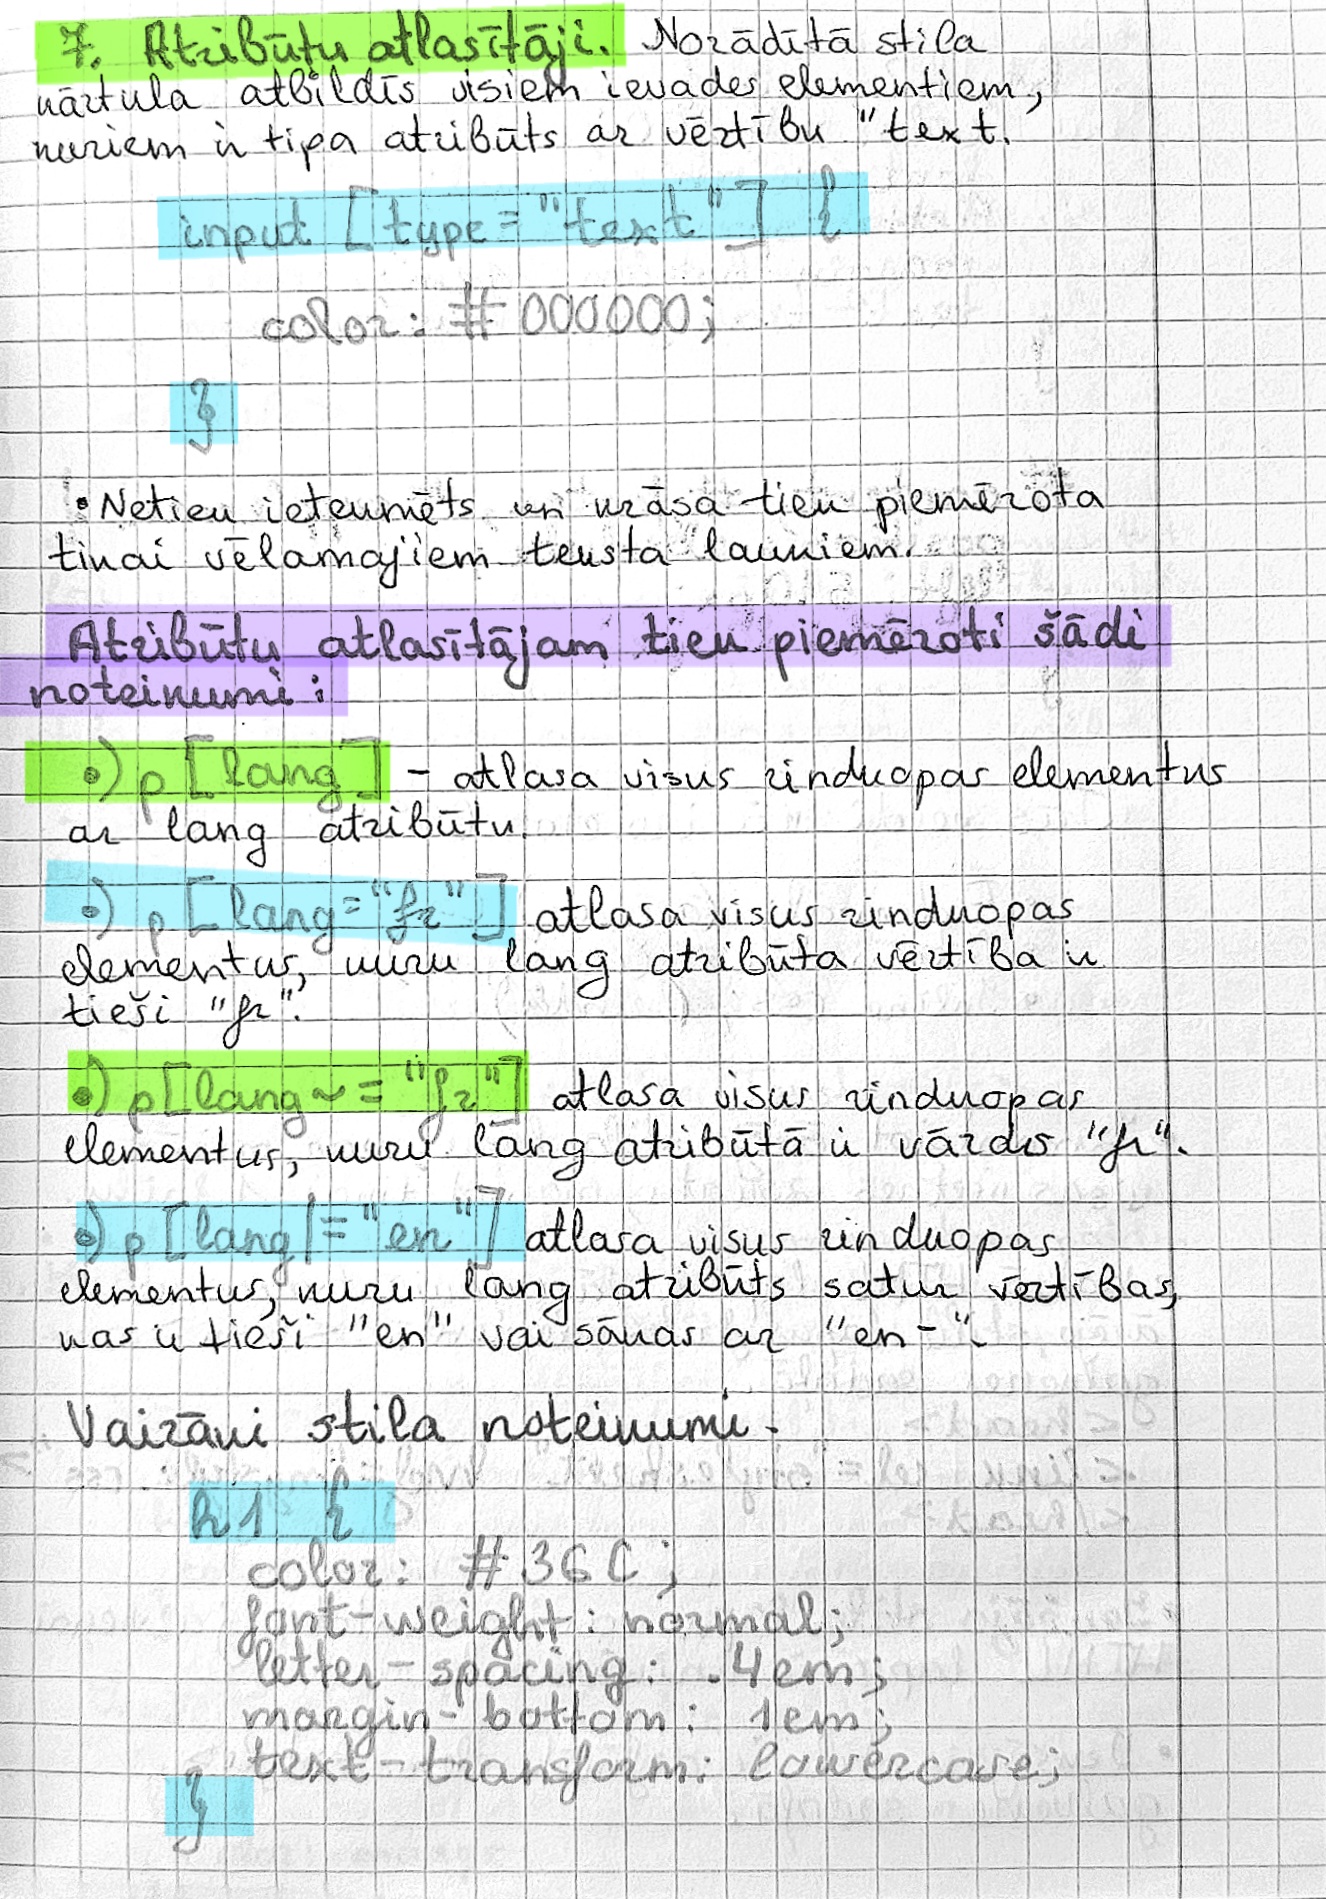 7. Atribūtu atlasītāji. Norādītā stila
kārtula atbildīs visiem ievades elementiem,
kuriem ir tipa atribūts ar vērtību "text.
input [type="text"] {
color: #000000;
}
• Netiek ietekmēts un krāsa tiek piemērota
tikai vēlamajiem teksta laukiem.
Atribūtu atlasītājam tiek piemēroti šādi
noteikumi:
•) p [lang] - atlasa visus rindkopas elementus
ar lang atribūtu.
•) p [lang="fr"] atlasa visus rindkopas
elementus, kuru lang atribūta vērtība ir
tieši "fr".
•) p[lang~="fr"] atlasa visus rindkopas
elementus, kuru lang atribūtā ir vārds "fr".
•) p [lang|="en"] atlasa visus rindkopas
elementus, kuru lang atribūts satur vērtības,
kas ir tieši "en" vai sākas ar "en-".
Vairāki stila noteikumi.
h1 {
color: #36C;
font-weight: normal;
letter-spacing: .4em;
margin-bottom: 1em;
text-transform: lowercase;
}